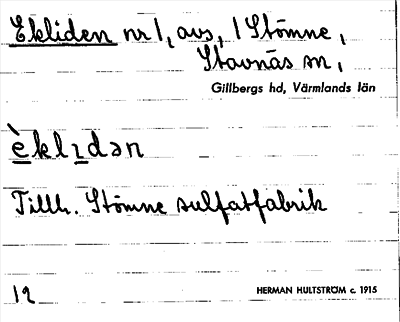 Ekliden nr 1, avs, / Stömne,
Stavnäs sn,
Gillbergs hd, Värmlands län
è̲klɪ̲dən
Tillh. Stömne sulfatfabrik
19
HERMAN HULTSTRÖM c. 1915